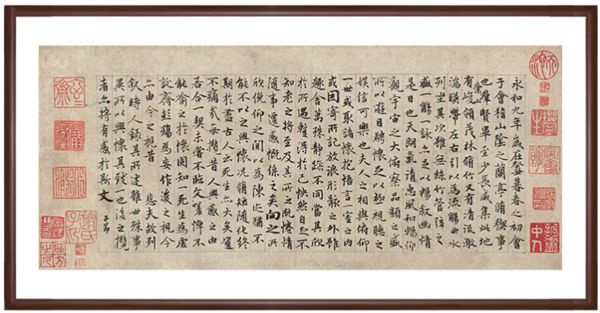 永和九年歲在癸丑暮春之初會
于會稽山陰之蘭亭脩稧事
也羣賢畢至少長咸集此地
有崇山峻領茂林脩竹又有清流激
湍暎帶左右引以為流觴曲水
列坐其次雖無絲竹管弦之
盛一觴一詠亦足以暢敘幽情
是日也天朗氣清惠風和暢仰
觀宇宙之大俯察品類之盛
所以遊目騁懷足以極視聽之
娛信可樂也夫人之相與俯仰
一世或取諸懷抱悟言一室之內
或因寄所託放浪形骸之外雖
趣舍萬殊靜躁不同當其欣
於所遇蹔得於己怏然自足不
知老之將至及其所之既惓情
隨事遷感慨係之矣向之所
欣俛仰之間以為陳迹猶不
能不以之興懷況脩短隨化終
期於盡古人云死生亦大矣豈
不痛哉每攬昔人興感之由
若合一契未嘗不臨文嗟悼不
能喻之於懷固知一死生為虛
誕齊彭殤為妄作後之視今
亦由今之視昔悲夫故列
敘時人錄其所述雖世殊事
異所以興懷其致一也後之攬
者亦將有感於斯文 子昂